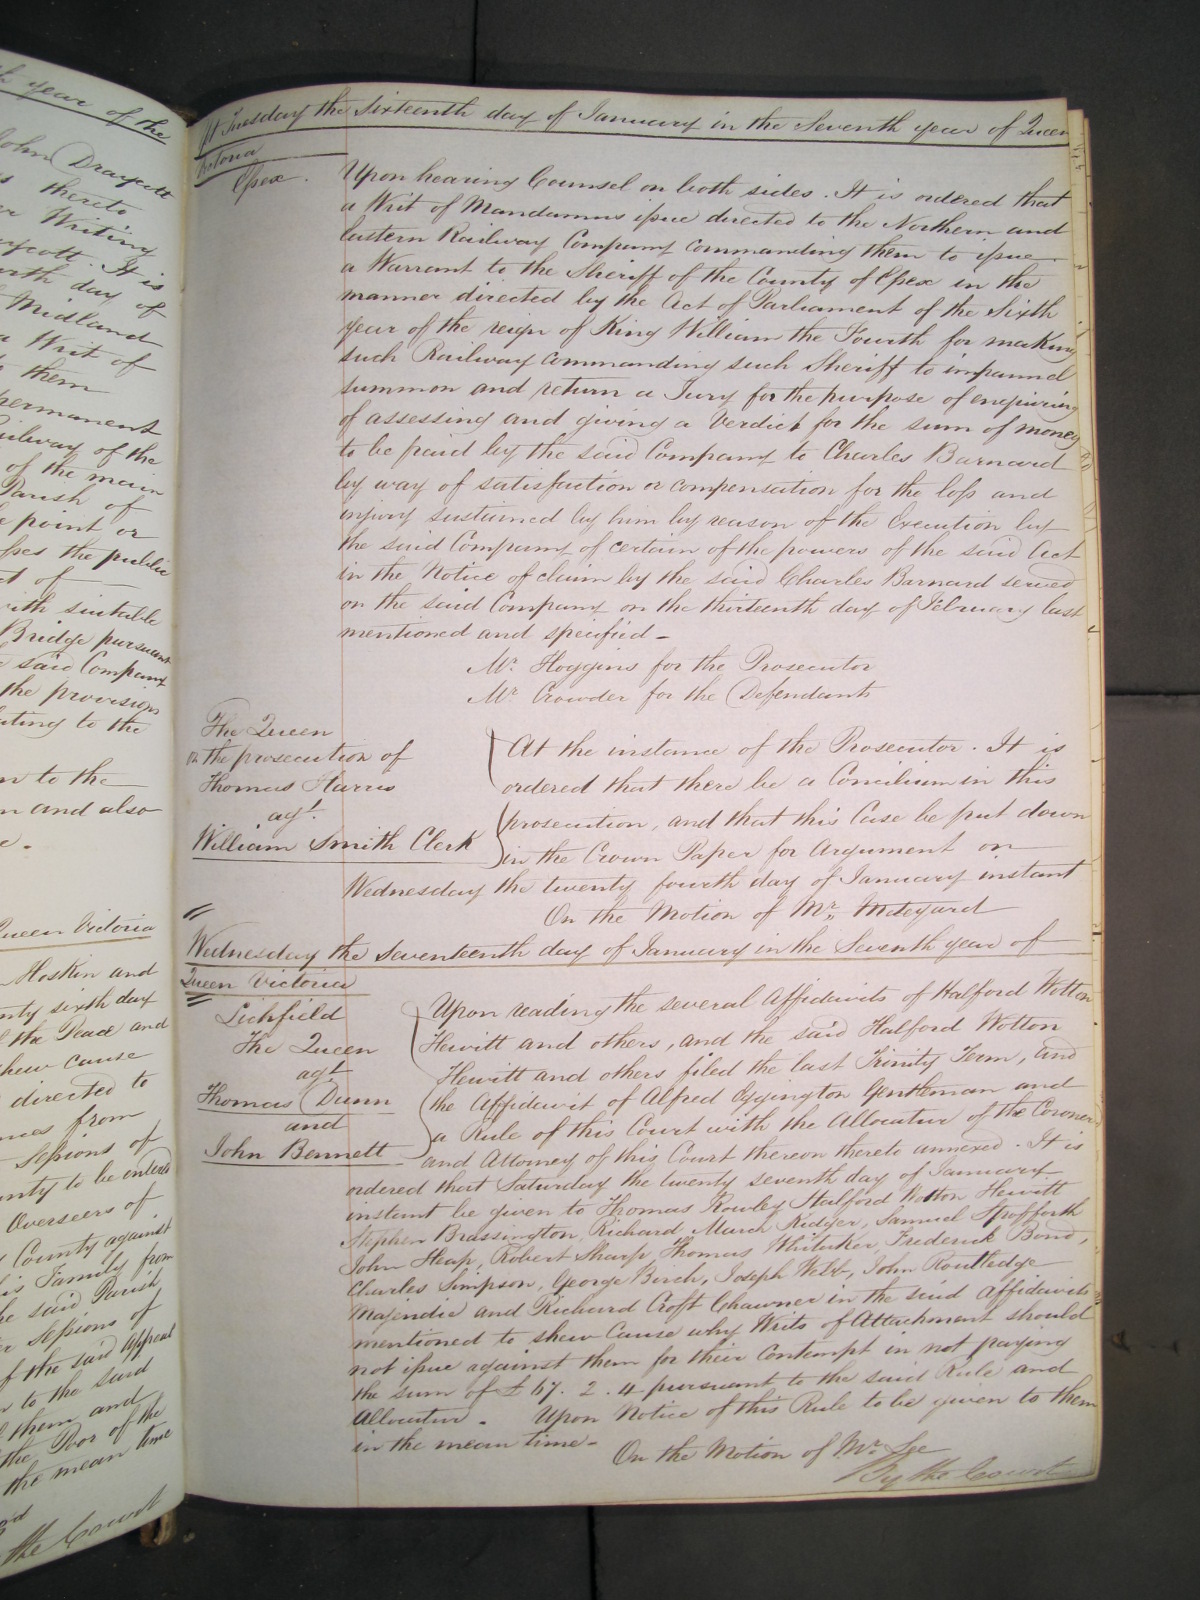 year of the
John Draycott
thereto
Writing
It is
day of
Midland
a Writ of
them
permanent
Railway of the
of the main
Parish of
point or
the public
of
with suitable
Bridge pursuant
said Company
the provisions
to the
to the
and also
Queen Victoria
Hoskin and
sixth day
the Peace and
shew cause
directed to
from
Sessions of
County to be entered
Overseers of
County against
his Family from
the said Parish
Sessions of
of the said Appeal
to the said
them and
the Poor of the
the mean time
the Court
Tuesday the Sixteenth day of January in the Seventh year of Queen
Victoria
Essex.
Upon hearing Counsel on both sides. It is ordered that
a Writ of Mandamus issue directed to the Northern and
Eastern Railway Company commanding them to issue
a Warrant to the Sheriff of the County of Essex in the
manner directed by the Act of Parliament of the Sixth
year of the reign of King William the Fourth for making
such Railway commanding such Sheriff to impannel
summon and return a Jury for the purpose of enquiring
of assessing and giving a Verdict for the sum of money
to be paid by the said Company to Charles Barnard
by way of satisfaction or compensation for the loss and
injury sustained by him by reason of the Execution by
the said Company of certain of the powers of the said Act
in the Notice of claim by the said Charles Barnard served
on the said Company on the thirteenth day of February last
mentioned and specified -
Mr. Hoggins for the Prosecutor
Mr Crowder for the Defendants
The Queen
on the prosecution of
Thomas Harris
agt.
William Smith Clerk
At the instance of the Prosecutor. It is
ordered that there be a Concilium in this
prosecution, and that this Case be put down
in the Crown Paper for Argument on
Wednesday the twenty fourth day of January instant
On the Motion of Mr.
Wednesday the Seventeenth day of January in the Seventh year of
Queen Victoria
Lichfield
The Queen
agt
Thomas Dunn
and
John Bennett
Upon reading the several Affidavits of Halford Wotton
Hewitt and others, and the said Halford Wotton
Hewitt and others filed the last Trinity Term, and
the Affidavit of Alfred Eggington Gentleman and
a Rule of this Court with the Allocatur of the Coroner
and Attorney of this Court thereon thereto annexed. It is
ordered that Saturday the twenty seventh day of January
instant be given to Thomas Rowley Halford Wotton Hewitt
Stephen Brassington, Richard March Kidger, Samuel Spofforth
John Heap, Robert Sharp, Thomas Whitaker, Frederick Bond,
Charles Simpson, George Birch, Joseph Webb, John Routledge
Majendie and Richard Croft Chawner in the said Affidavits
mentioned to shew Cause why Writs of Attachment should
not issue against them for their Contempt in not paying
the sum of £ 67. 2. 4 pursuant to the said Rule and
Allocatur. Upon Notice of this Rule to be given to them
in the mean time -
On the Motion of Mr. Lee
By the Court